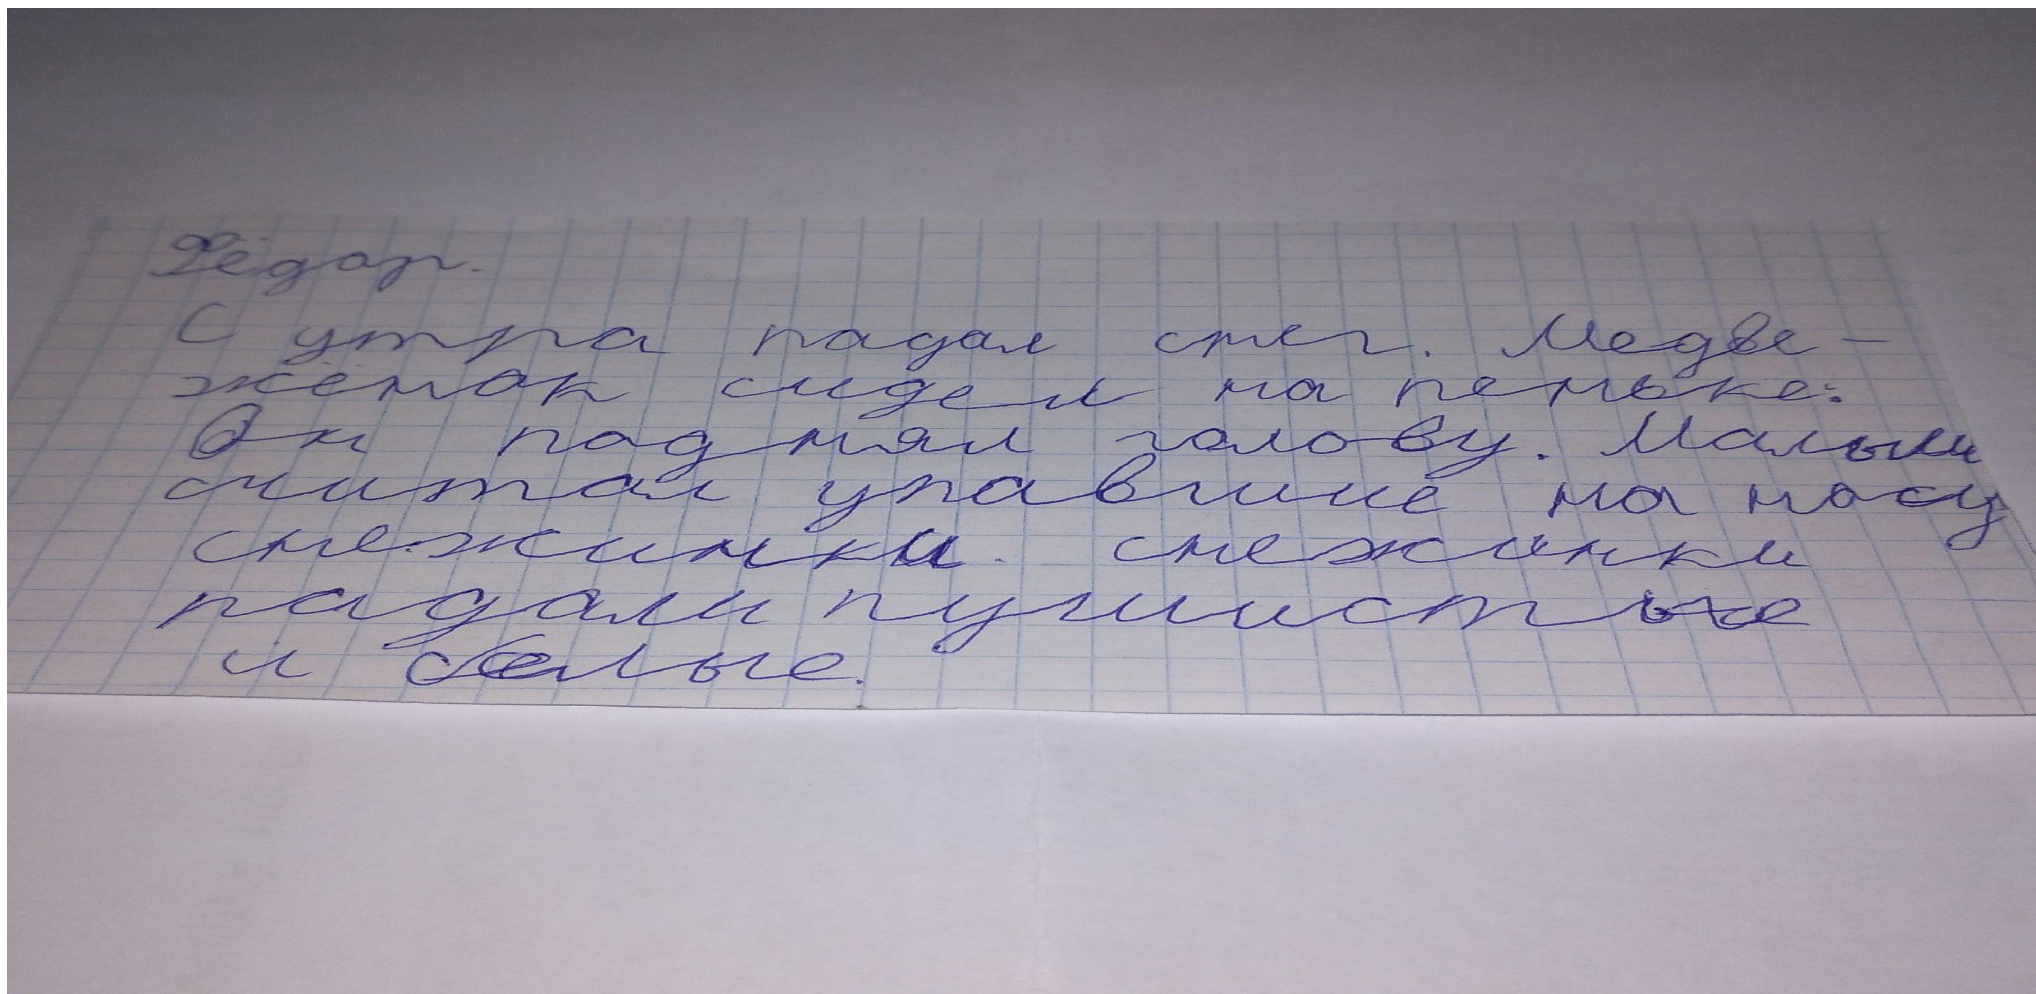 Фёдор.
С утра падал снег. Медве-
жёнок сидел на пеньке.
Он поднял голову. Малыш
считал упавшие на носу
снежинки. снежинки
падали пушистые
и белые.